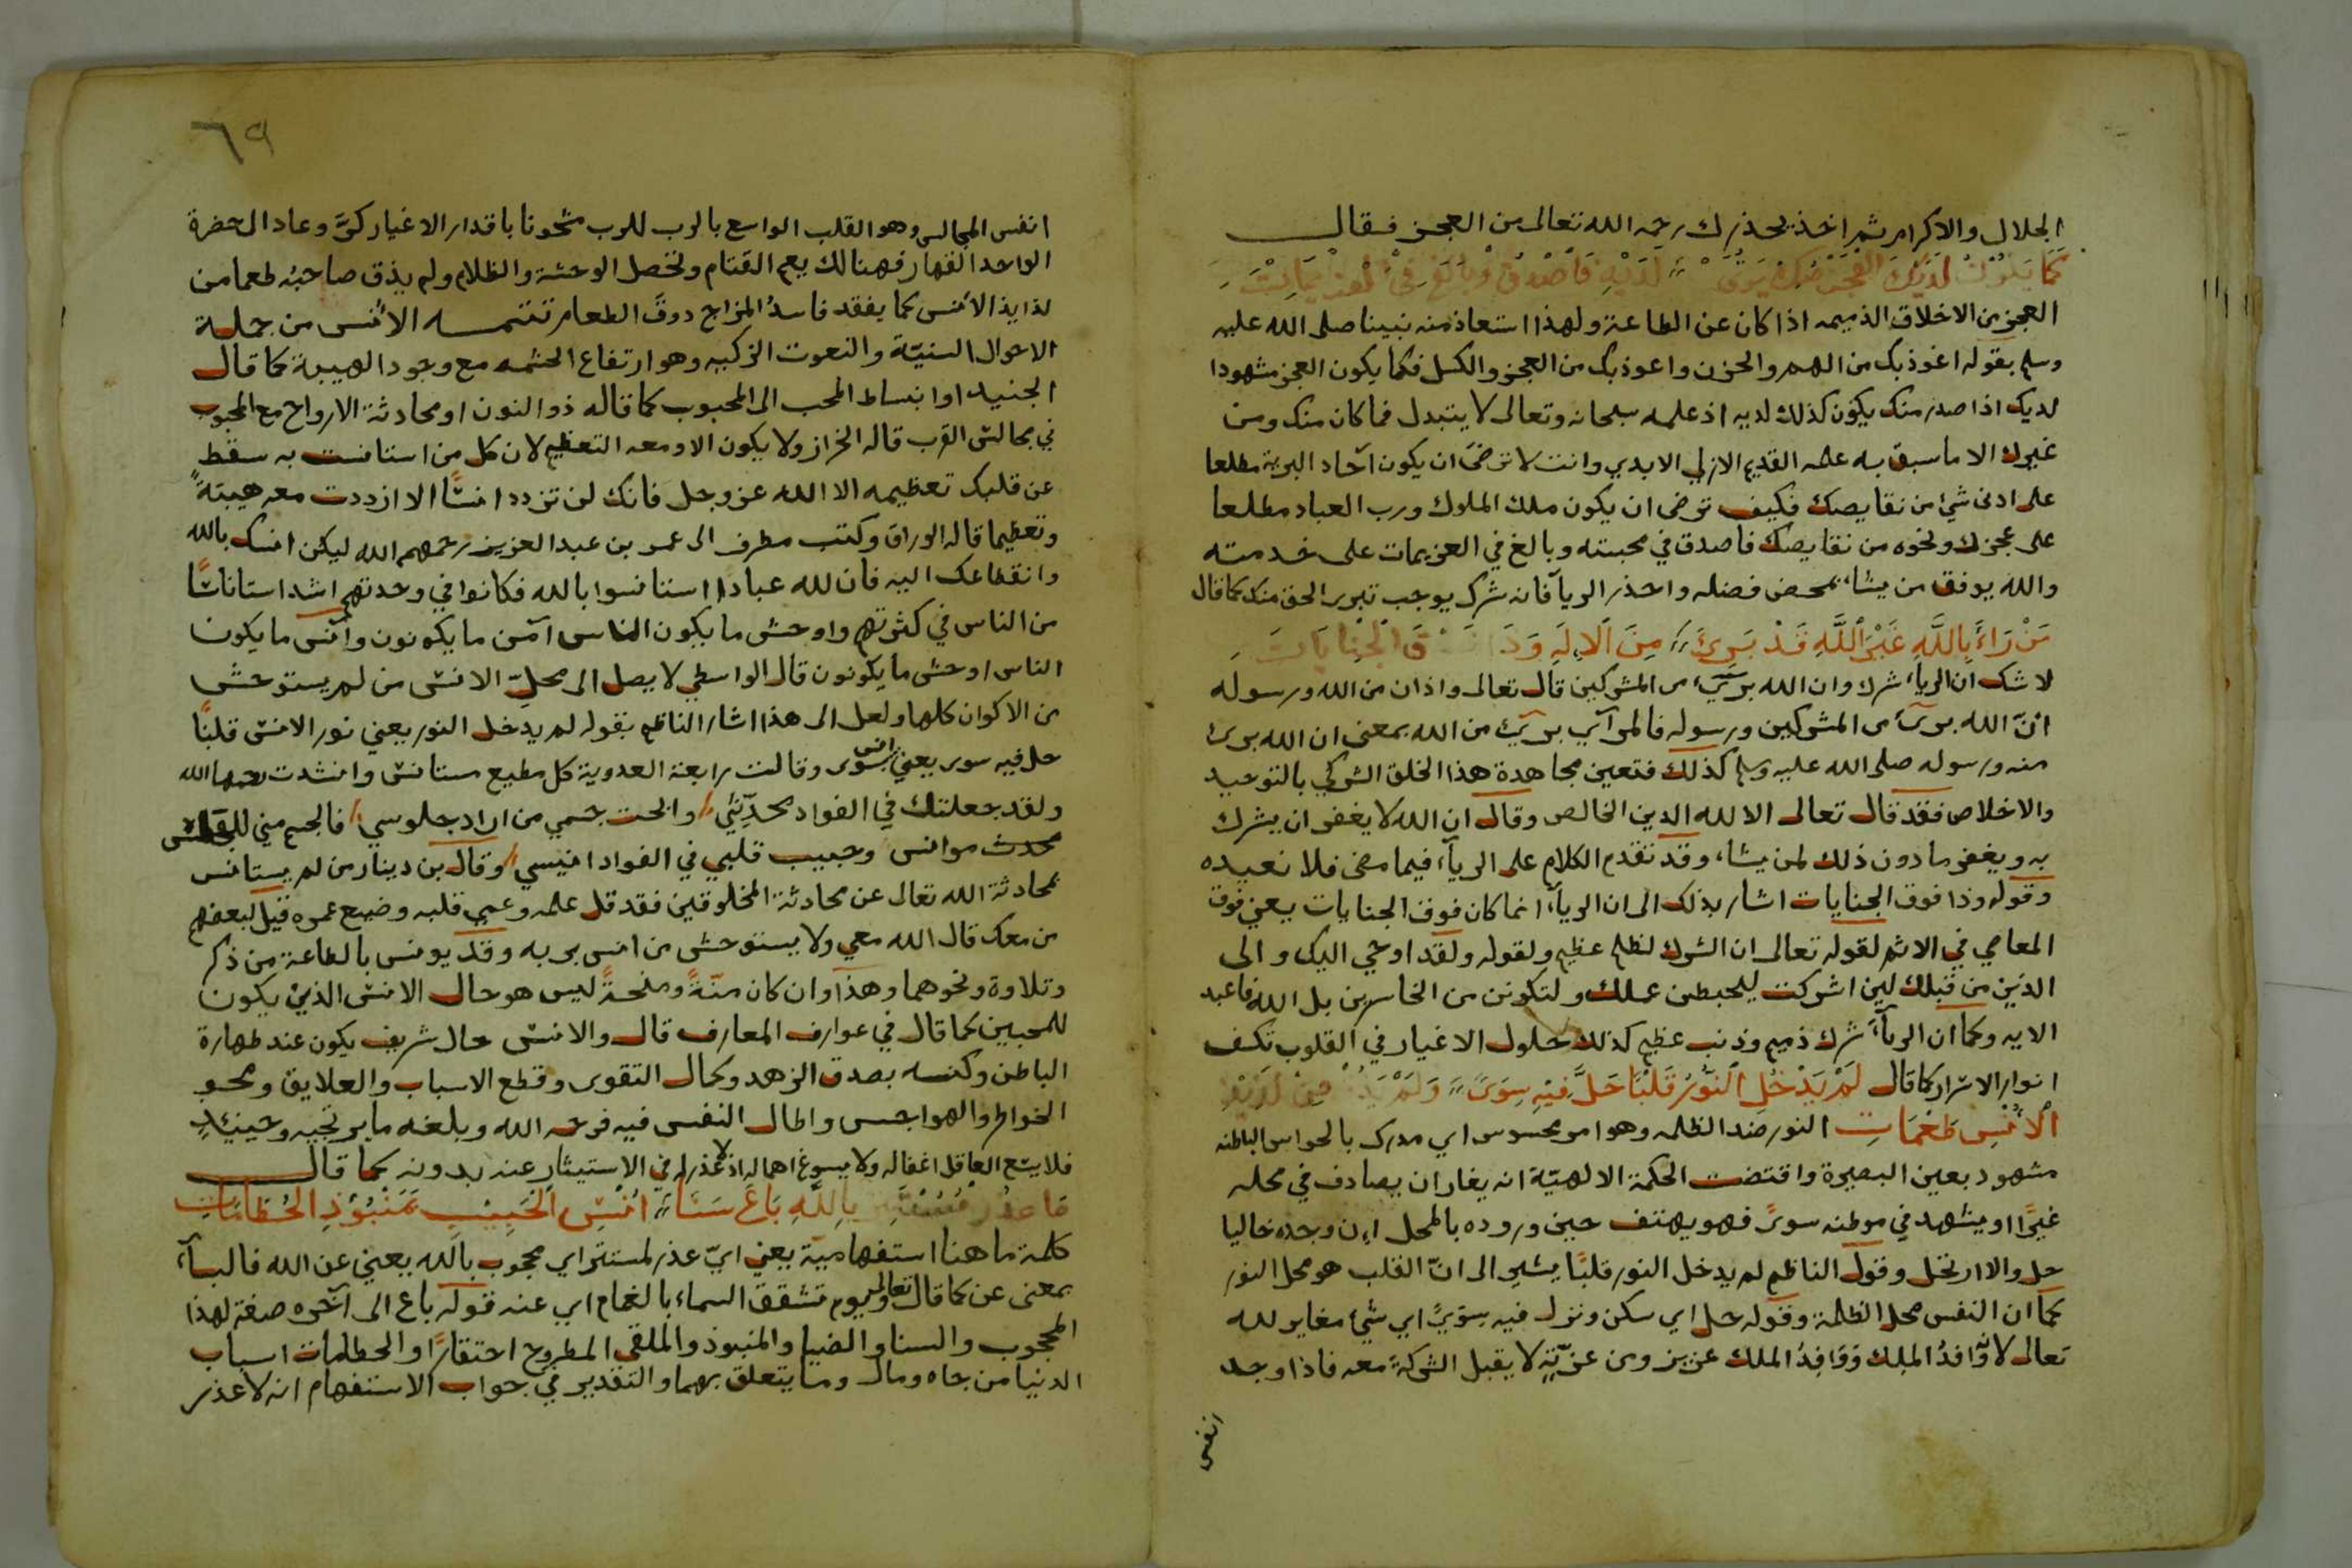 الجلال والاكرام ثم اخذ يحذرك رحمه الله تعالى من العجز فقال
كما يكون لديك العجز منك يرى لديه فاصدق وبالغ في العزيمات
العجز من الاخلاق الذميمه اذا كان عن الطاعة ولهذا استعاذ منه نبينا صلى الله عليه
وسلم بقوله اعوذ بك من الهم والحزن واعوذ بك من العجز والكسل فكما يكون العجز مشهودا
لديك اذا صدر منك يكون كذلك لديه اذ علمه سبحانه وتعالى لا يتبدل فما كان منك ومن
غيرك الا ما سبق به علمه القديم الازلي الابدي وانت لا ترضى ان يكون آحاد البرية مطلعا
على ادنى شئ من نقايصك فكيف ترضى ان يكون ملك الملوك ورب العباد مطلعا
على عجزك ونحوه من نقايصك فاصدق في محبته وبالغ في العزيمات على خدمته
والله يوفق من يشاء بمحض فضله واحذر الريا فانه شرك يوجب تبرير الحق منك كما قال
مَنْ رَاءَ بِاللَّهِ غَيْرَ اللَّهِ قَدْ بَرِئَ مِنَ الْإِلَهِ وَذَا فَوْقَ الْجِنَايَاتِ
لا شك ان الرياء شرك وان الله برئ من المشركين قال تعالى واذان من الله ورسوله
انّ الله برئ من المشركين ورسوله فالمرآي برئ من الله بمعنى ان الله برئ
منه ورسوله صلى الله عليه وسلم كذلك فتعين مجاهدة هذا الخلق الشركي بالتوحيد
والاخلاص فقد قال تعالى الا لله الدين الخالص وقال ان الله لا يغفر ان يشرك
به ويغفر ما دون ذلك لمن يشاء وقد تقدم الكلام على الرياء فيما مضى فلا نعيده
وقوله وذا فوق الجنايات اشار بذلك الى ان الرياء انما كان فوق الجنايات يعني فوق
المعاصي في الاثم لقوله تعالى ان الشرك لظلم عظيم ولقوله ولقد اوحي اليك والى
الذين من قبلك لين اشركت ليحبطن عملك ولتكونن من الخاسرين بل الله فاعبد
الايه وكما ان الرياء شرك ذميم وذنب عظيم كذلك حلول الاغيار في القلوب تكسف
انوار الاسرار كما قال لَمْ يَدْخُلِ النُّورُ قَلْبًا حَلَّ فِيْهِ سِوَىً وَلَمْ يَذُقْ مِنْ لَذِيْذِ
الْأُنْسِ طَعْمَاتِ النور ضد الظلمه وهو امر محسوس اي مدرك بالحواس الباطنه
مشهود بعين البصيرة واقتضت الحكمة الالهيّة انه يغار ان يصادف في محله
غيرًا او يشهد في موطنه سوىً فهو يهتف حين وروده بالمحل ان وجده خاليا
حل والا ارتحل وقول الناظم لم يدخل النور قلبًا يشير الى انّ القلب هو محل النور
كما ان النفس محل الظلمة وقوله حل اي سكن ونزل فيه سوىً اي شئ مغاير لله
تعالى لا وآفدُ الملك ووافِدُ الملك عزيز ومن عزّتِهِ لا يقبل الشركة معه فاذا وجد
انفس
٦٩
انفس المجالس وهو القلب الواسع بالرب للرب مشحونا باقدار الاغيار كرَّ وعاد الى حضرة
الواحد القهار فهنالك يعم القتام وتحصل الوحشة والظلام ولم يذق صاحبه طعما من
لذايذ الانس كما يفقد فاسدُ المزاج ذوق الطعام تتمـــه الانس من جملة
الاحوال السنيّة والنعوت الزكيه وهو ارتفاع الحشمه مع وجود الهيبة كما قال
الجنيد او انبساط المحب الى المحبوب كما قاله ذو النون او محادثة الارواح مع المحبوب
في مجالس القرب قاله الخراز ولا يكون الا ومعه التعظيم لان كل من استانست به سقط
عن قلبك تعظيمه الا الله عز وجل فانك لن تزدد انسًا الا ازددت معه هيبةً
وتعظيما قاله الوراق وكتب مطرف الى عمر بن عبد العزيز رحمهم الله ليكن انسك بالله
وانقطاعك اليه فان لله عبادا استانسوا بالله فكانوا في وحدتهم اشد استاناسًا
من الناس في كثرتهم واوحش ما يكون الناس آمن ما يكونون وآنس ما يكون
الناس اوحش ما يكونون قال الواسطي لا يصل الى محلّ الانس من لم يستوحش
من الاكوان كلها ولعل الى هذا اشار الناظم بقوله لم يدخل النور يعني نور الانس قلبًا
حل فيه سوى يعني انس بسوى وقالت رابعة العدوية كل مطيع مستانس وانشدت رحمها الله
ولقد جعلتك في الفواد محدّثي وابحت جسمي من اراد جلوسي فالجسم مني للجليس
محدث موانس وحبيب قلبي في الفواد انيسي وقال بن دينار من لم يستانس
بمحادثة الله تعالى عن محادثة المخلوقين فقد قل علمه وعمي قلبه وضيع عمره قيل لبعضهم
من معك قال الله معي ولا يستوحش من انس بربه وقد يونس بالطاعة من ذكر
وتلاوة ونحوهما وهذا وان كان منّةً ومنحةً ليس هو حال الانس الذين يكون
للمحبين كما قال في عوارف المعارف قال والانس حال شريف يكون عند طهارة
الباطن وكنسه بصدق الزهد وكمال التقوى وقطع الاسباب والعلايق ومحو
الخواطر والهواجس واطال النفس فيه فرحمه الله وبلغه ما يرتجيه وحينيذٍ
فلا يسع العاقل اغفاله ولا يسوغ اهماله اذ لا عذر له في الاستيثار عنه بدونه كما قال
مَا عذر مستتر بِاللَّهِ بَاعَ سَنَاءَ اُنْسِ الْحَبِيْبِ بِمَنْبُوْذِ الْحُطَامَاتِ
كلمة ما هنا استفهاميّة يعني ايّ عذر لمستتر اي محجوب بالله يعني عن الله فالباء
بمعنى عن كما قال تعالى ويوم تشقق السماء بالغمام اي عنه قوله باع الى آخره صفة لهذا
المحجوب والسنا والضيا والمنبوذ والملقي المطروح احتقارًا والحطامات اسباب
الدنيا من جاه ومال وما يتعلق بهما والتقدير في جواب الاستفهام انه لا عذر